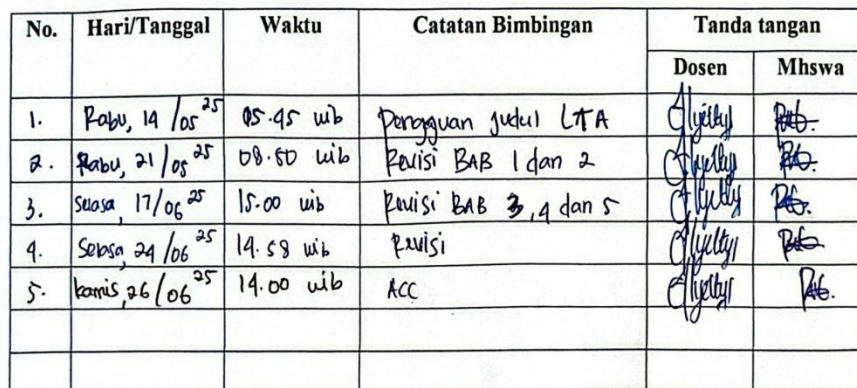 No. Hari/Tanggal Waktu Catatan Bimbingan Tanda tangan
Dosen Mhswa
1. Rabu, 14/05 25 05.45 wib Pengajuan judul LTA
2. Rabu, 21/05 25 08.50 wib Revisi BAB 1 dan 2
3. Selasa, 17/06 25 15.00 wib Revisi BAB 3,4 dan 5
4. Selasa, 24/06 25 14.58 wib Revisi
5. kamis, 26/06 25 14.00 wib ACC